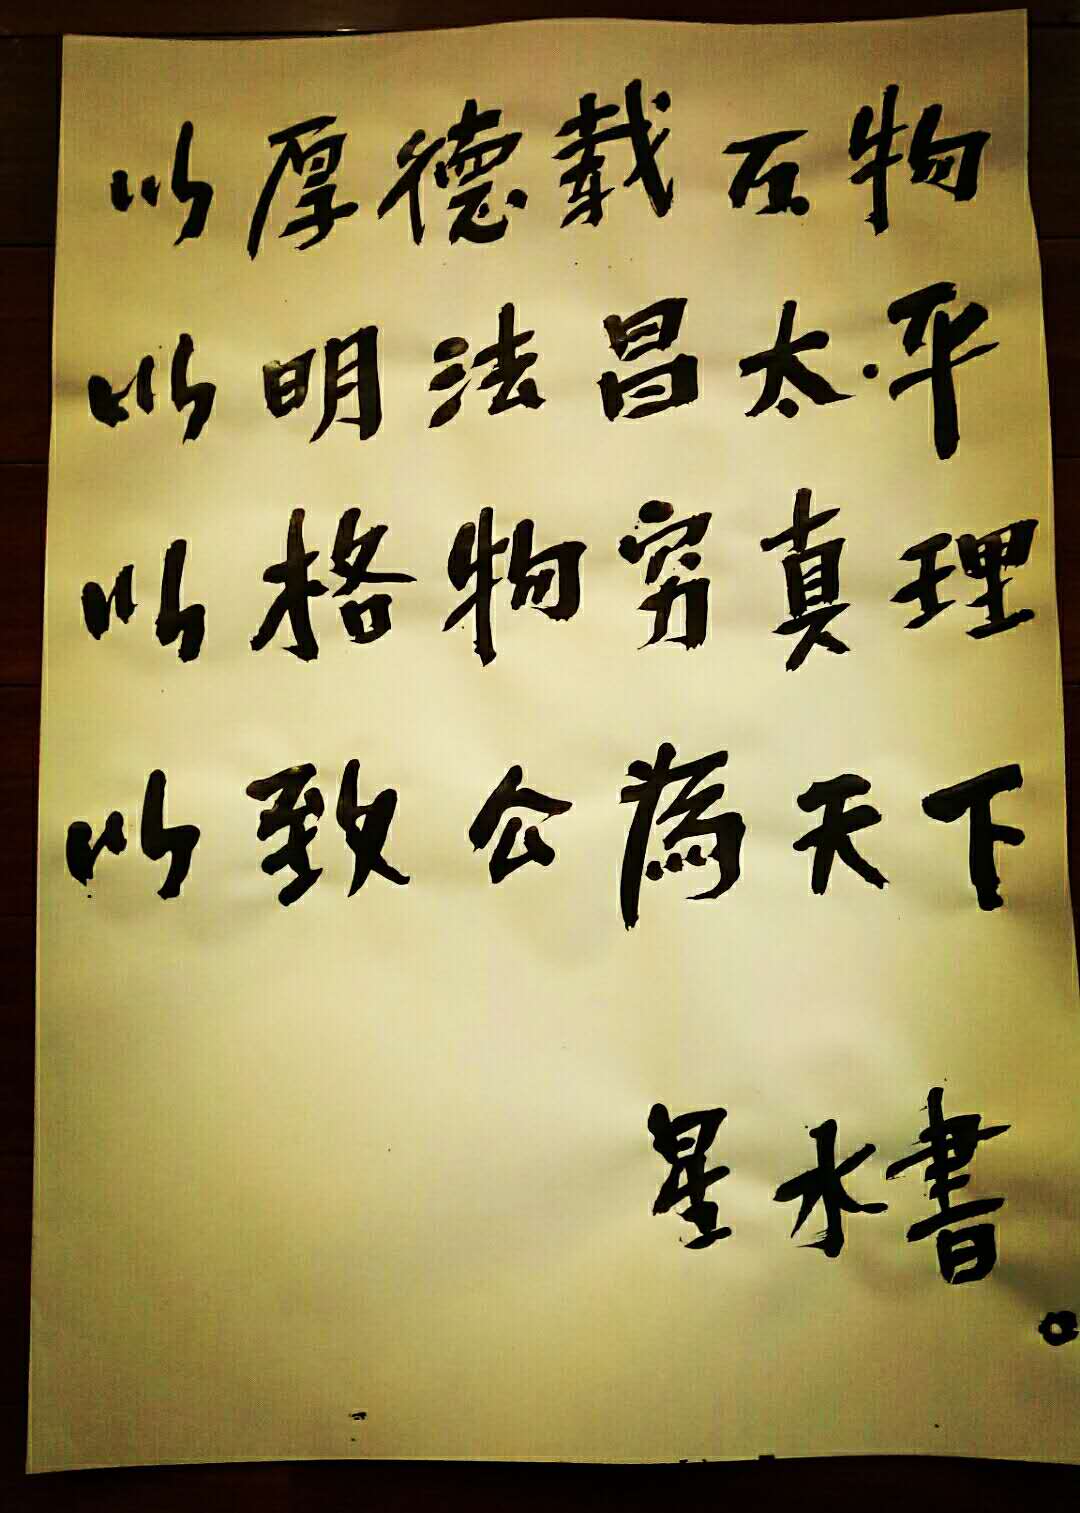 以厚德載万物
以明法昌太平
以格物穷真理
以致公為天下
星水書